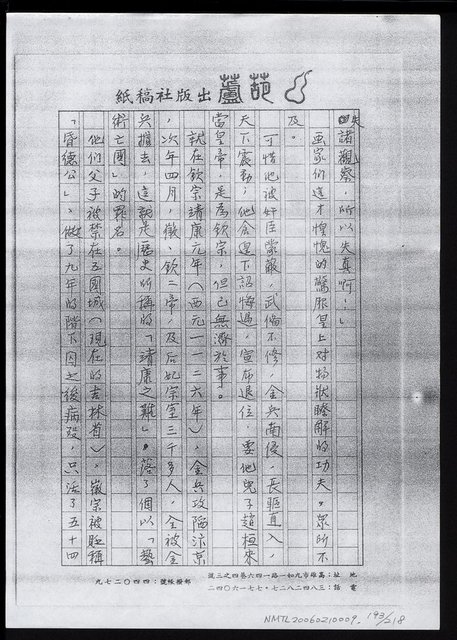 紙稿社版出蘆葫
失諸觀察，所以失真啊！」
畫家們這才惶愧的驚服皇上对物狀瞭解的功夫，眾所不
及。
可惜他被奸臣蒙蔽，武備不修，金兵南侵，長驅直入，
天下震動；他倉皇下詔悔過，宣布退位，要他兒子趙桓來
當皇帝，是為欽宗，但已無濟於事。
就在欽宗靖康元年（西元一一二六年），金兵攻陷汴京
，次年四月，徽、欽二帝，及后妃宗室三千多人，全被金
兵擄去，這就是歷史所稱的「靖康之難」。落了個以「藝
術亡國」的罪名。
他們父子被禁在五國城（現在的吉林省），徽宗被貶稱
「昏德公」，做了九年的階下囚之後病歿，只活了五十四
地址：高雄市九如一路一四六巷四之三號
電話：三八四二八二七・七七一六〇四二
郵撥帳號：四四〇二七九
NMTL20060210009 193/218